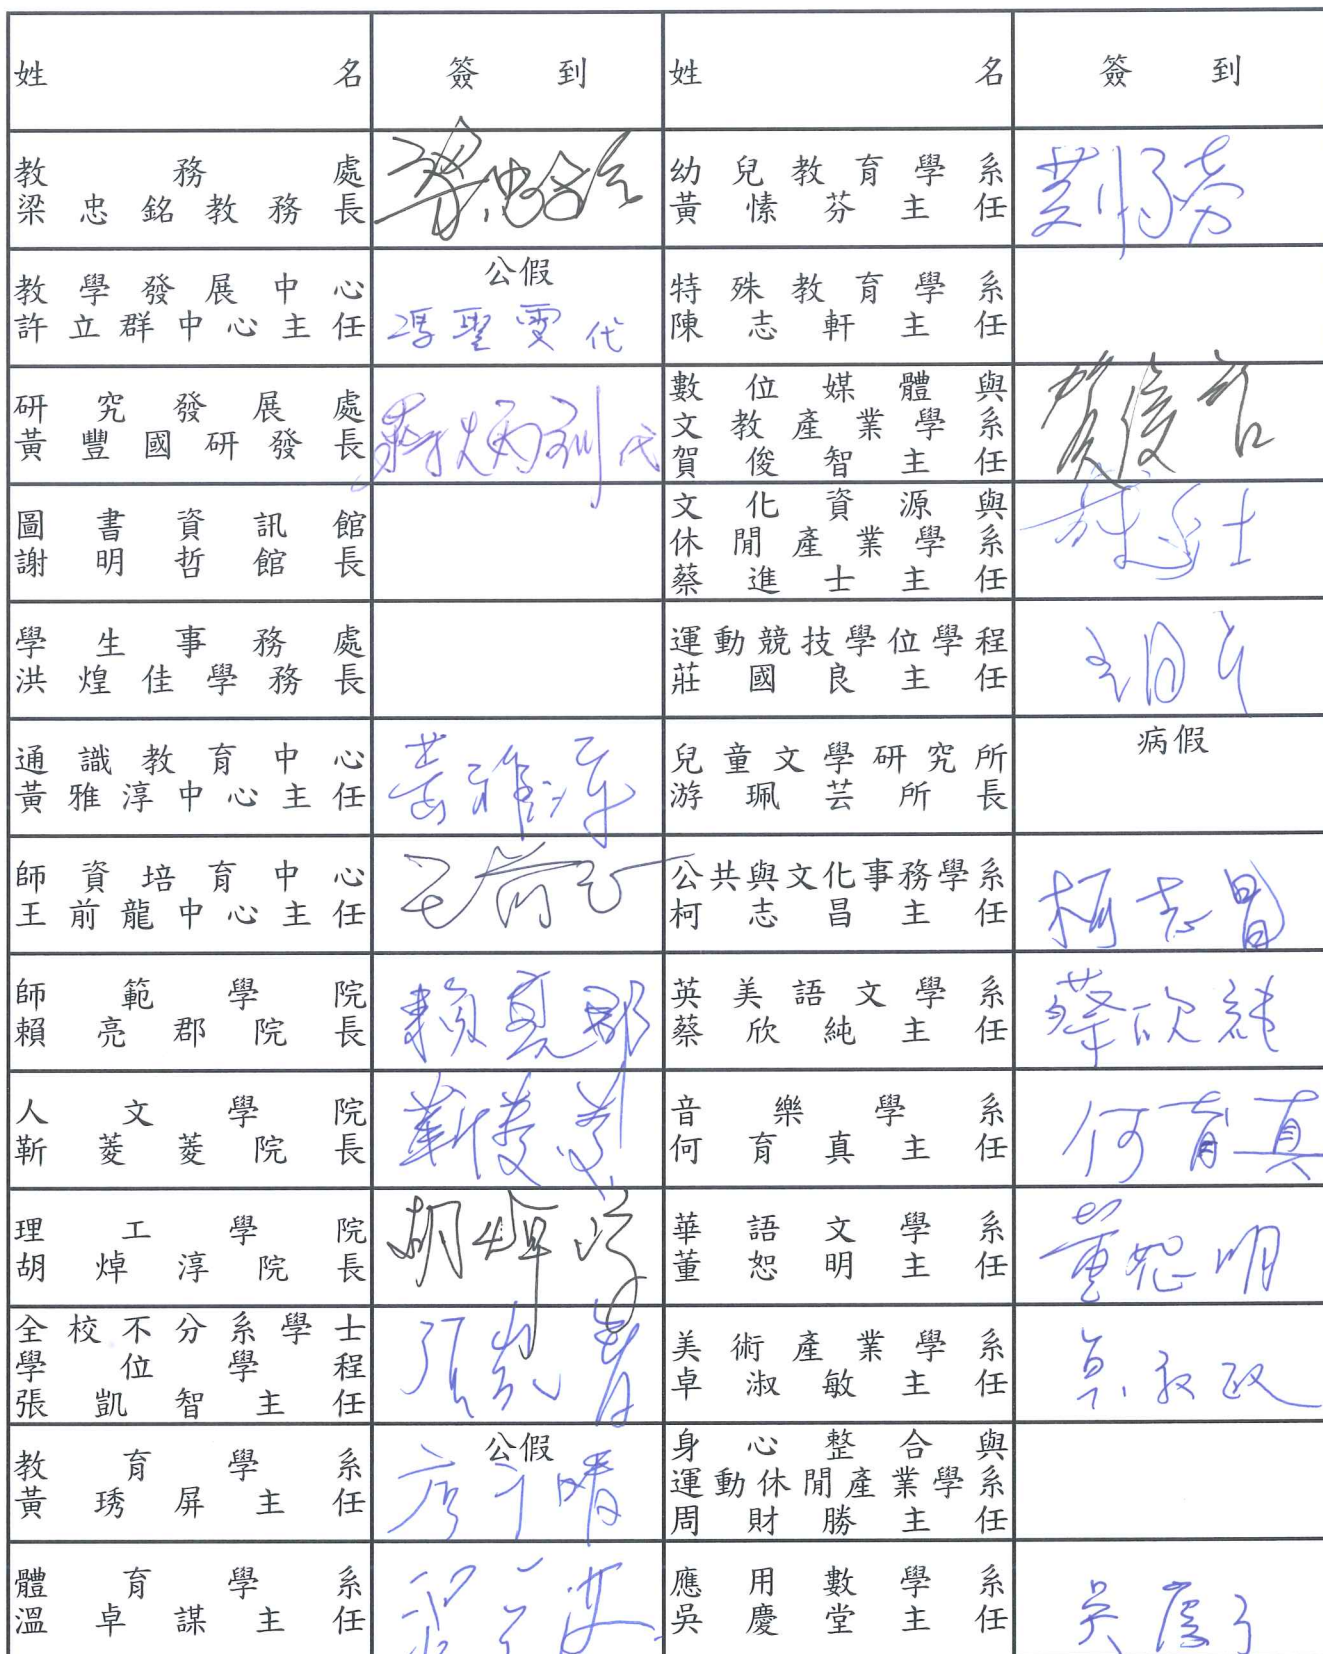 姓名 簽到 姓名 簽到
教務處
梁忠銘教務長
梁忠銘
幼兒教育學系
黃愫芬主任
教學發展中心
許立群中心主任
公假
馮聖雯代
特殊教育學系
陳志軒主任
研究發展處
黃豐國研發長
代
數位媒體與
文教產業學系
賀俊智主任
賀俊智
圖書資訊館
謝明哲館長
文化資源與
休閒產業學系
蔡進士主任
學生事務處
洪煌佳學務長
運動競技學位學程
莊國良主任
通識教育中心
黃雅淳中心主任
黃雅淳
兒童文學研究所
游珮芸所長
病假
師資培育中心
王前龍中心主任
王前龍
公共與文化事務學系
柯志昌主任
柯志昌
師範學院
賴亮郡院長
賴亮郡
英美語文學系
蔡欣純主任
蔡欣純
人文學院
靳菱菱院長
靳菱菱
音樂學系
何育真主任
何育真
理工學院
胡焯淳院長
胡焯淳
華語文學系
董恕明主任
董恕明
全校不分系學士
學位學程
張凱智主任
張凱智
美術產業學系
卓淑敏主任
教育學系
黃琇屏主任
公假
身心整合與
運動休閒產業學系
周財勝主任
體育學系
溫卓謀主任
應用數學系
吳慶堂主任